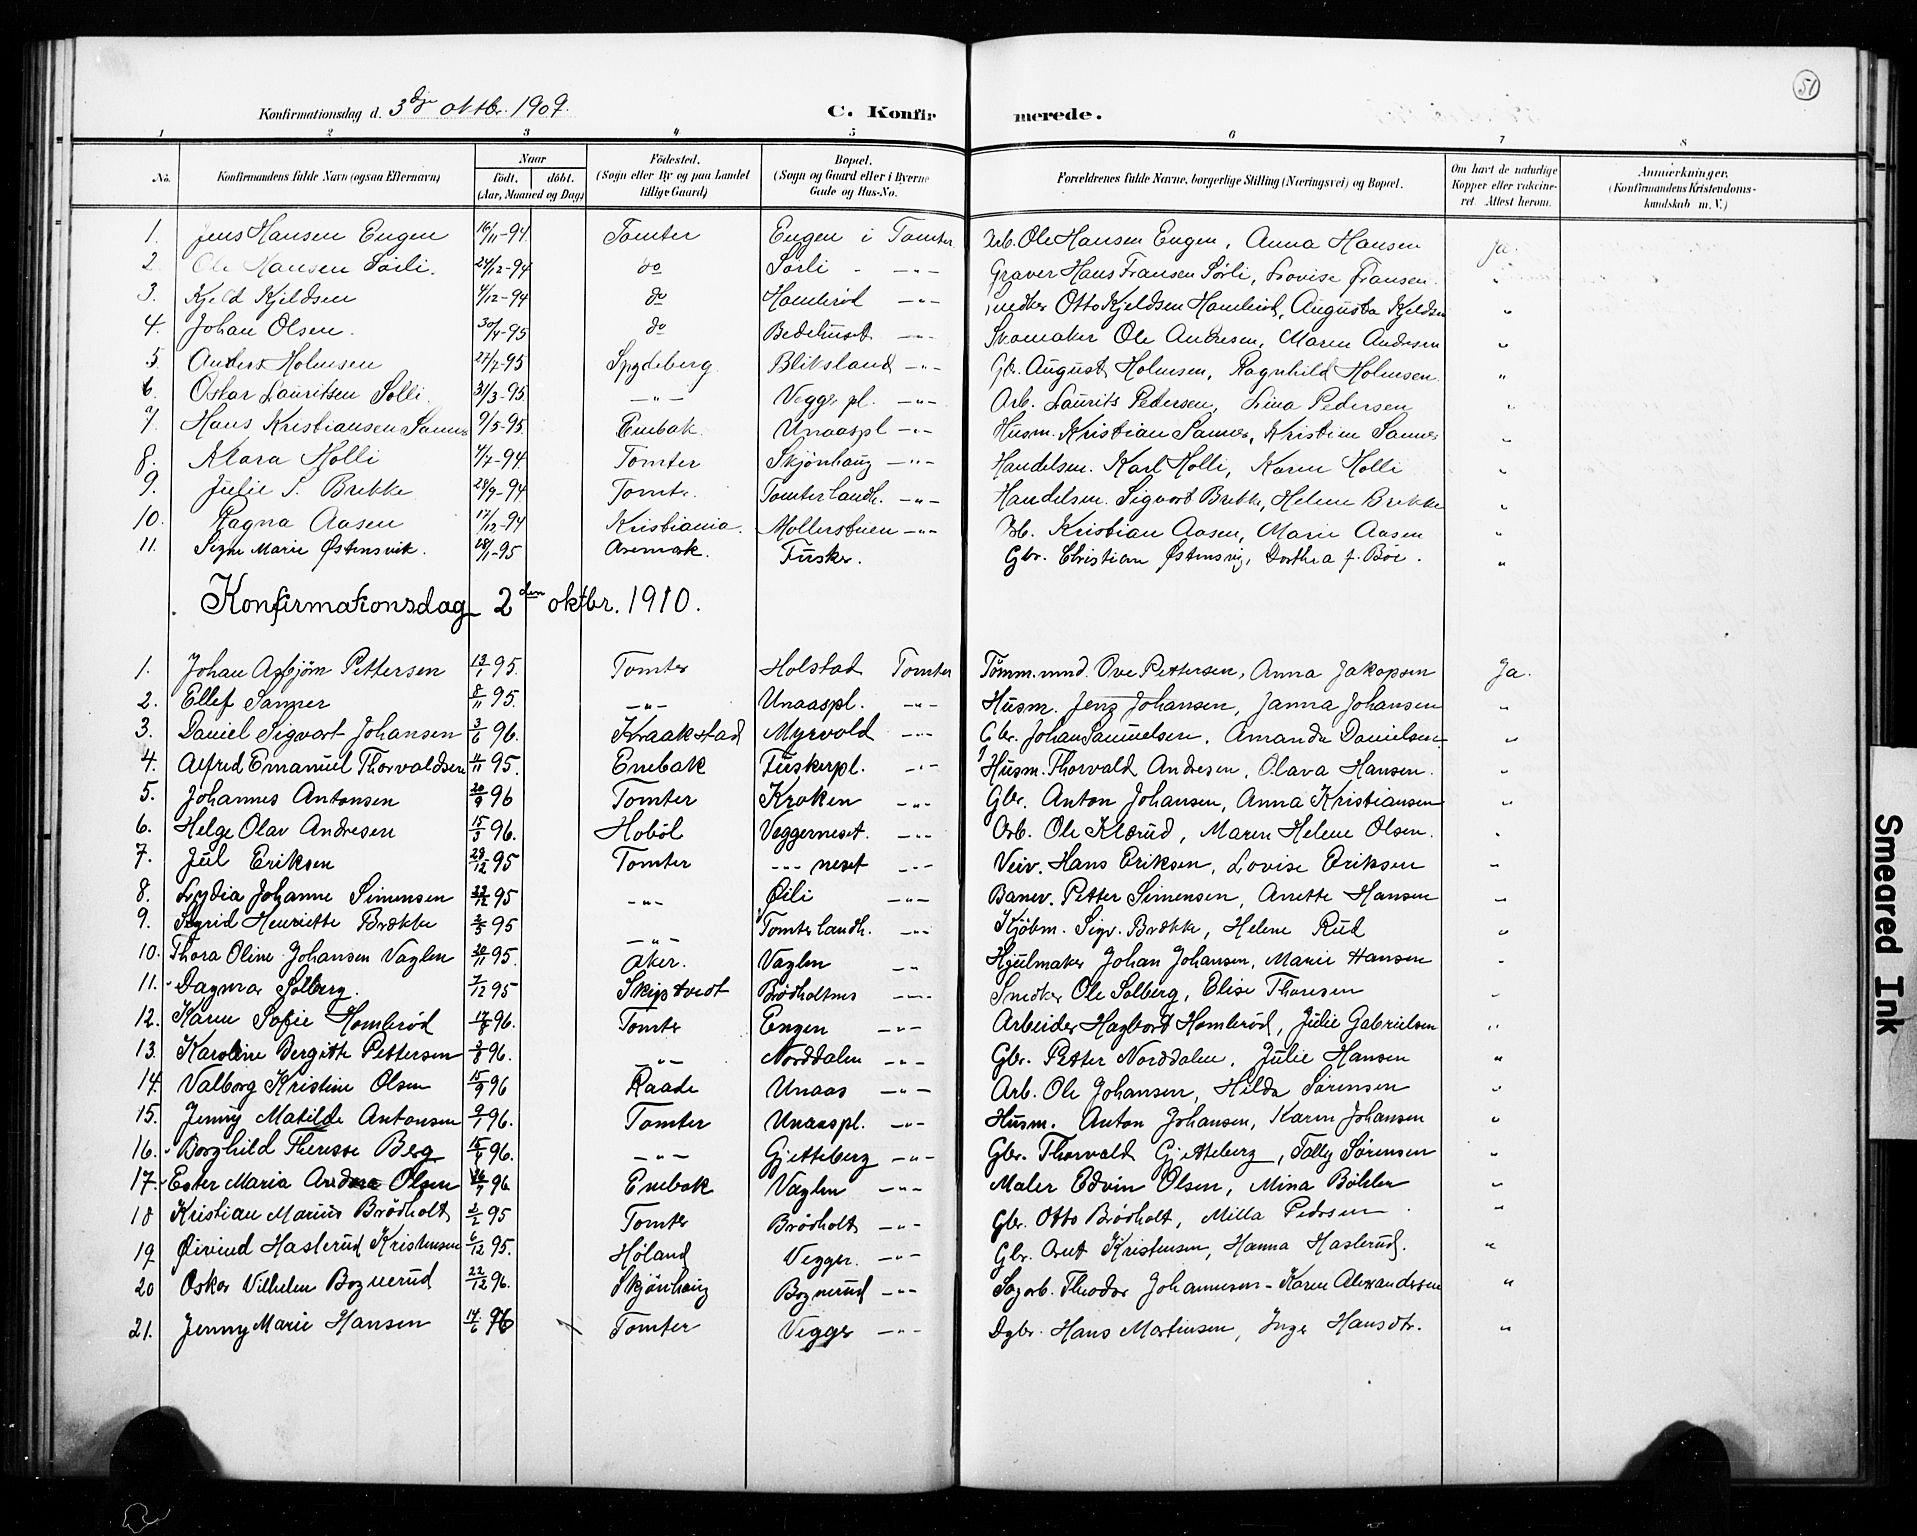 51
Konfirmationsdag d. 3die oktbr. 1909. C. Konfirmerede.
1 2 3 4 5 6 7 8
No. Konfirmandens fulde Navn (ogsaa Efternavn) Naar Födt. döbt. (Aar, Maaned og Dag) Födested. (Sogn eller By og paa Landet tillige Gaard) Bopæl. (Sogn og Gaard eller i Byerne Gade og Hus-No. Forældrenes fulde Navne, borgerlige Stilling (Næringsvei) og Bopæl. Om havt de naturlige Kopper eller vakcineret. Attest herom. Anmærkninger. (Konfirmandens Kristendomskundskab m. V.)
1. Jens Hansen Engen 16/11-94 Tomter Engen i Tomter Arb. Ole Hansen Engen, Anna Hansen Ja.
2. Ole Hansen Sörli. 24/12-94 do Sörli - -"- Graver Hans Fransen Sörli, Lovise Fransen. "
3. Kjeld Kjeldsen 4/12-94 do Homleröd -"- Snedker Otto Kjeldsen Homleröd, Augusta Kjeldsen "
4. Johan Olsen. 30/4-95 do Bedehuset -"- Skomaker Ole Andresen, Maren Andresen "
5 Anders Holmsen 27/2-95 Spydeberg Bliksland -"- Gbr. August Holmsen, Ragnhild Holmsen. "
6. Oskar Lauritsen Solli. 31/3-95 -"- Vegger pl. -"- Arb. Laurits Pedersen, Lina Pedersen "
7. Hans Kristiansen Sanner 9/5-95 Enebak Unaaspl -"- Husm. Kristian Sanner, Kristine Sanner "
8. Klara Holli 4/7-94 Tomter Skjönhaug -"- Handelsm. Karl Holli, Karen Holli "
9. Julie S. Brekke 28/9-94 Tomter. Tomter landh. -"- Handelsm. Sigvart Brekke, Helene Brekke "
10. Ragna Aasen 17/12-94 Kristiania. Mollerstuen -"- Kristian Aasen, Marie Aasen "
11. Signe Marie Østensvik. 28/1-95 Aremark. Fusker. Gbr. Christian Østensvig, Dorthea f. Böe. "
Konfirmationsdag 2den oktbr. 1910.
1. Johan Asbjörn Pettersen 13/1 95. Tomter Holstad Tomter Tömm.mnd. Ove Pettersen, Anna Jakopsen Ja.
2. Ellef Sanner 8/11 95. -"- Unaaspl. -"- Husm. Jens Johansen, Janna Johansen "
3. Daniel Sigvart Johansen 3/6 96. Kraakstad Myrvold -"- Gbr. Johan Samuelsen, Amanda Danielsen "
4. Alfred Emanuel Thorvaldsen 11/11 95. Enebak Fuskerpl. -"- Husm. Thorvald Andresen, Olava Hansen. "
5. Johannes Antonsen 20/9 96 Tomter Kroken -"- Gbr. Anton Johansen, Anna Kristiansen "
6. Helge Olav Andresen 15/3 96. Hoböl Veggerneset. -"- Arb. Ole Klærud, Maren Helene Olsen. "
7. Jul Eriksen 29/12 95 Tomter --- neset -"- Veiv. Hans Eriksen, Lovise Eriksen "
8. Lydia Johanne Simensen 22/12 95 -"- Øili -"- Banev. Petter Simensen, Anette Hansen "
9. Sigrid Henriette Brække 2/5 95 -"- Tomter landh. -"- Kjöbm. Sigv. Brække, Helene Rud "
10. Thora Oline Johansen Vaglen 20/11 95. Aker. Vaglen -"- Hjulmaker Johan Johansen, Marie Hansen "
11. Dagmar Solberg. 7/12 95 Skiptvedt Brödholtnes -"- Snedker Ole Solberg, Elise Thoresen "
12. Karen Sofie Homleröd 17/8 96. Tomter Engen -"- Arbeider Hagbart Homleröd, Julie Gabrielsen "
13. Karoline Bergitte Pettersen 2/8 96. -"- Norddalen -"- Gbr. Petter Norddalen, Julie Hansen "
14. Valborg Kristine Olsen 15/9 96 Raade Unaas -"- Arb. Ole Johansen, Hilda Sörensen "
15. Jenny Matilde Antonsen 9/1 96. Tomter Unaaspl. -"- Husm. Anton Johansen, Karen Johansen "
16. Borghild Therese Berg 15/4 96. -"- Gjetteberg -"- Gbr. Thorvald Gjetteberg, Tolly Sörensen "
17. Ester Maria Andrea Olsen 26/7 96 Enebak Vaglen -"- Maler Edvin Olsen, Mina Böhler "
18 Kristian Marius Brödholt 2/2 95 Tomter Brödholt -"- Gbr. Otto Brödholt, Milla Pedersen "
19 Øivind Haslerud Kristensen 6/12 95. Höland Vegger. -"- Gbr. Anut Kristensen, Hanna Haslerud. "
20 Oskar Vilhelm Bognerud 22/12 96. Skjönhaug Bognerud -"- Sagarb. Theodor Johannesen - Karen Alexandersen "
21. Jenny Marie Hansen 14/6 96 Tomter Vegger -"- Dgbr. Hans Martinsen, Inger Hansdtr. "
Smeared Ink